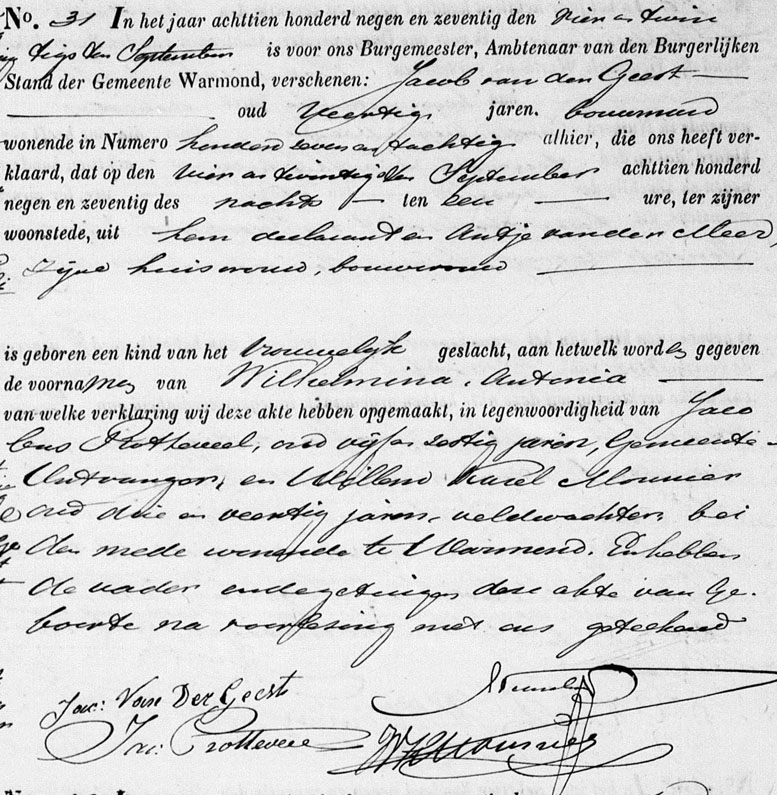 N°. 31 In het jaar achttien honderd negen en zeventig den vier en twin
tigsten September is voor ons Burgemeester, Ambtenaar van den Burgerlijken
Stand der Gemeente Warmond, verschenen: Jacob van der Geest
oud veertig jaren. bouwman
wonende in Numero honderd zeven en tachtig alhier, die ons heeft ver-
klaard, dat op den vier en twintigsten September achttien honderd
negen en zeventig des nachts ten een ure, ter zijner
woonstede, uit hem declarant en Antje van der Meer,
Zijne huisvrouw, bouwvrouw
is geboren een kind van het vrouwelijk geslacht, aan hetwelk worden gegeven
de voornamen van Wilhelmina, Antonia
van welke verklaring wij deze akte hebben opgemaakt, in tegenwoordigheid van Jaco
bus Rotteveel, oud vijf en zestig jaren, Gemeente-
Ontvanger, en Willem Karel Mounier
oud drie en veertig jaren, veldwachter, bei
den mede wonende te Warmond. En hebben
de vader en de getuigen deze akte van Ge-
boorte na voorlezing met ons geteekend
Jac: Van Der Geest
Jac: Rotteveel WKMounier